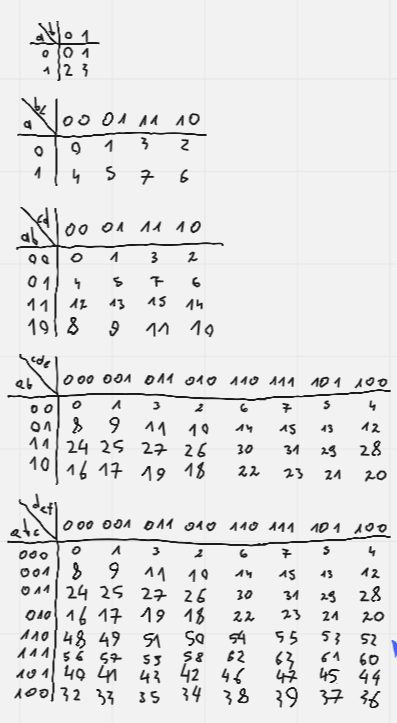 a b 0 1
0 0 1
1 2 3
a bc 00 01 11 10
0 0 1 3 2
1 4 5 7 6
ab cd 00 01 11 10
00 0 1 3 2
01 4 5 7 6
11 12 13 15 14
10 8 9 11 10
ab cde 000 001 011 010 110 111 101 100
00 0 1 3 2 6 7 5 4
01 8 9 11 10 14 15 13 12
11 24 25 27 26 30 31 29 28
10 16 17 19 18 22 23 21 20
abc def 000 001 011 010 110 111 101 100
000 0 1 3 2 6 7 5 4
001 8 9 11 10 14 15 13 12
011 24 25 27 26 30 31 29 28
010 16 17 19 18 22 23 21 20
110 48 49 51 50 54 55 53 52
111 56 57 59 58 62 63 61 60
101 40 41 43 42 46 47 45 44
100 32 33 35 34 38 39 37 36